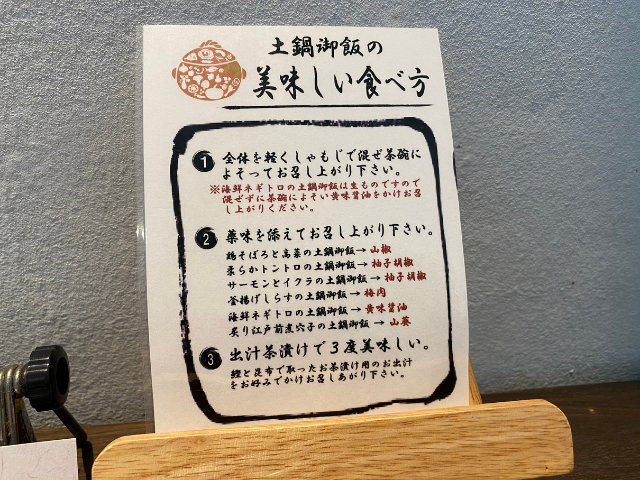 土鍋御飯の
美味しい食べ方
1 全体を軽くしゃもじで混ぜ茶碗に
よそってお召し上がり下さい。
※海鮮ネギトロの土鍋御飯は生ものですので
混ぜずに茶碗によそい黄味醤油をかけお召
し上がりください。
2 薬味を添えてお召し上がり下さい。
鶏そぼろと高菜の土鍋御飯→山椒
柔らかトントロの土鍋御飯→柚子胡椒
サーモンとイクラの土鍋御飯→柚子胡椒
釜揚げしらすの土鍋御飯→梅肉
海鮮ネギトロの土鍋御飯→黄味醤油
炙り江戸前煮穴子の土鍋御飯→山葵
3 出汁茶漬けで3度美味しい。
鰹と昆布で取ったお茶漬け用のお出汁
をお好みでかけお召しあがり下さい。